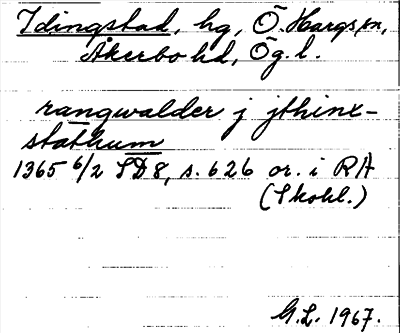 Idingstad, hg, Ö. Hargs sn,
Åkerbo hd, Ög. l.
rangwalder j jthinx-
stathum
1365 6/2 SD 8, s. 626 or. i RA
(Skohl.)
G.L. 1967.